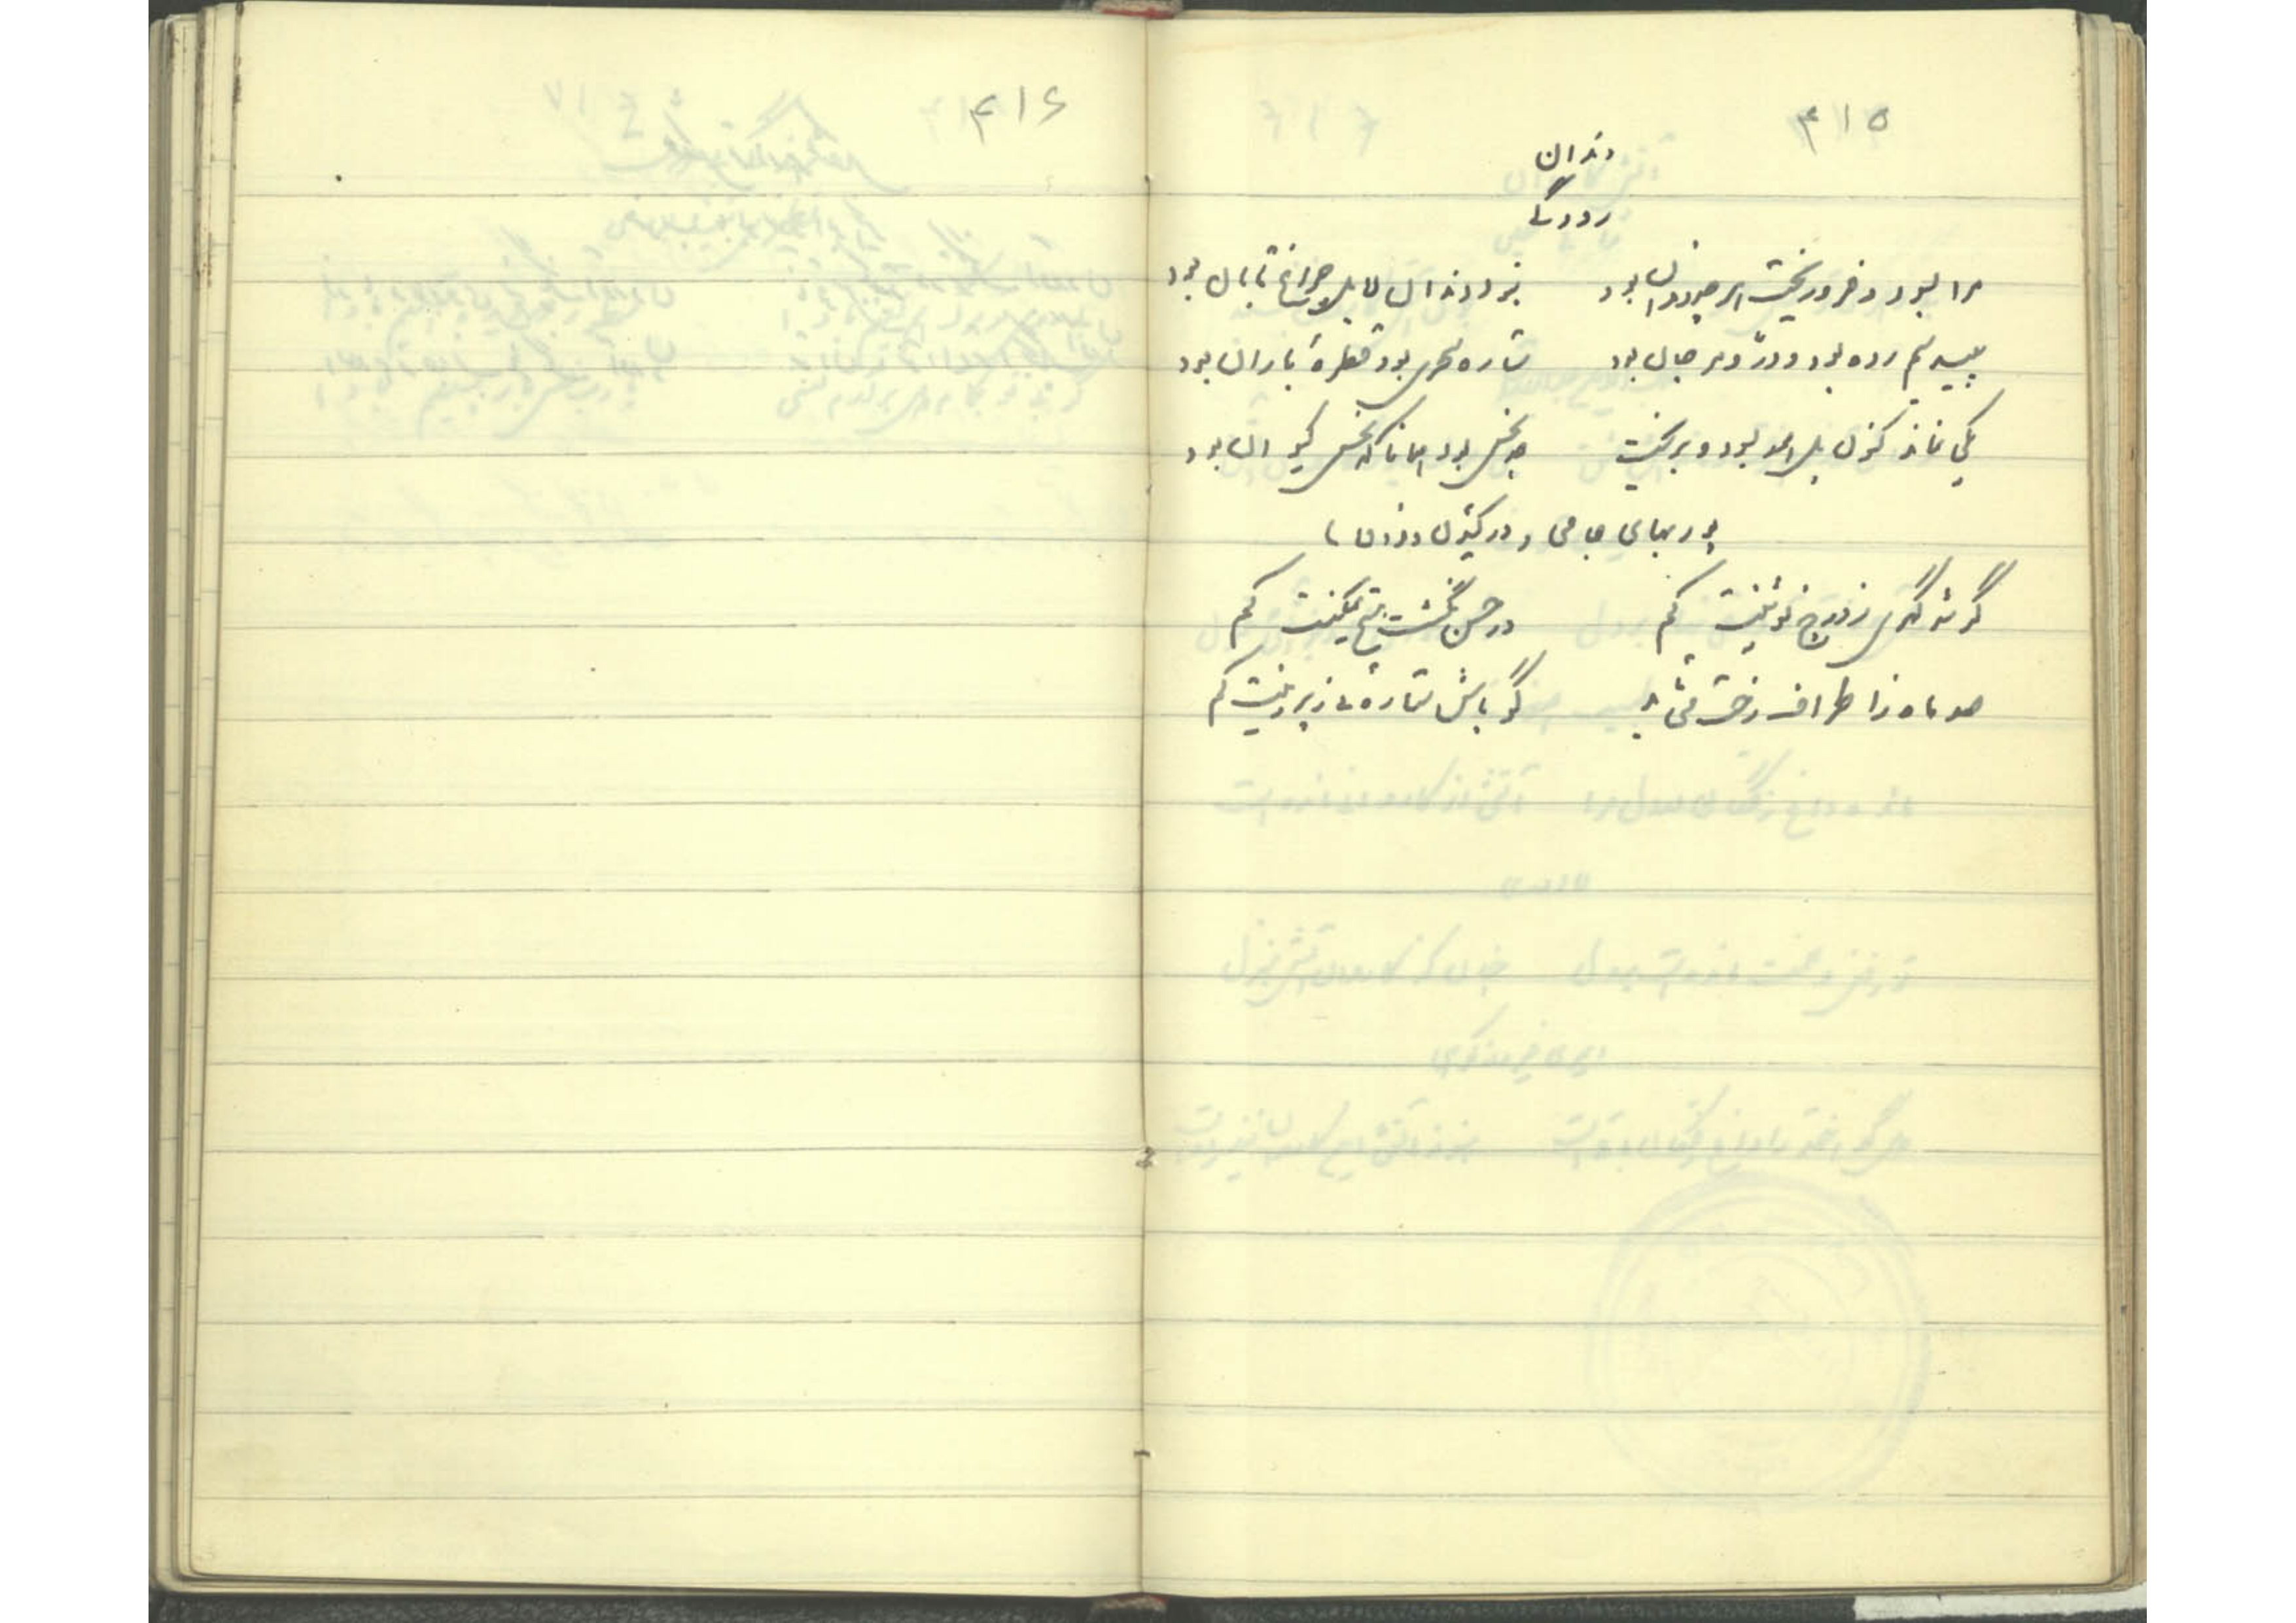 ۴۱۵
دندان
رودکی
مرا بسود و فرو ریخت هر چه دندان بود نبود دندان لا بل چراغ تابان بود
سپید سیم رده بود و در و مرجان بود ستاره سحری بود و قطره باران بود
یکی نماند کنون بل همه بسود و بریخت چه نحس بود همانا که نحس کیوان بود
پوربهای جامی در کندن دندان
گر شد گهری ز درج نوشینت کم در حسن نگشت هیچ تمکینت کم
صد ماه ز اطراف رخت می تابد گو باش ستاره ای ز پروینت کم
۴۱۶